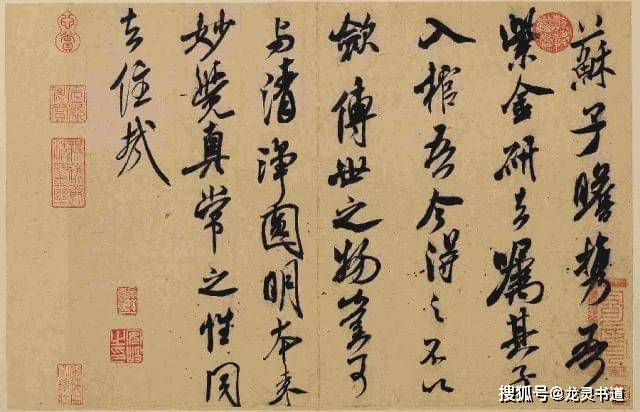 蘇子瞻携吾
紫金研去嘱其子
入棺吾今得之不以
歛傳世之物豈可
与清淨圓明本来
妙覺真常之性同
去住哉
搜狐号@龙灵书道